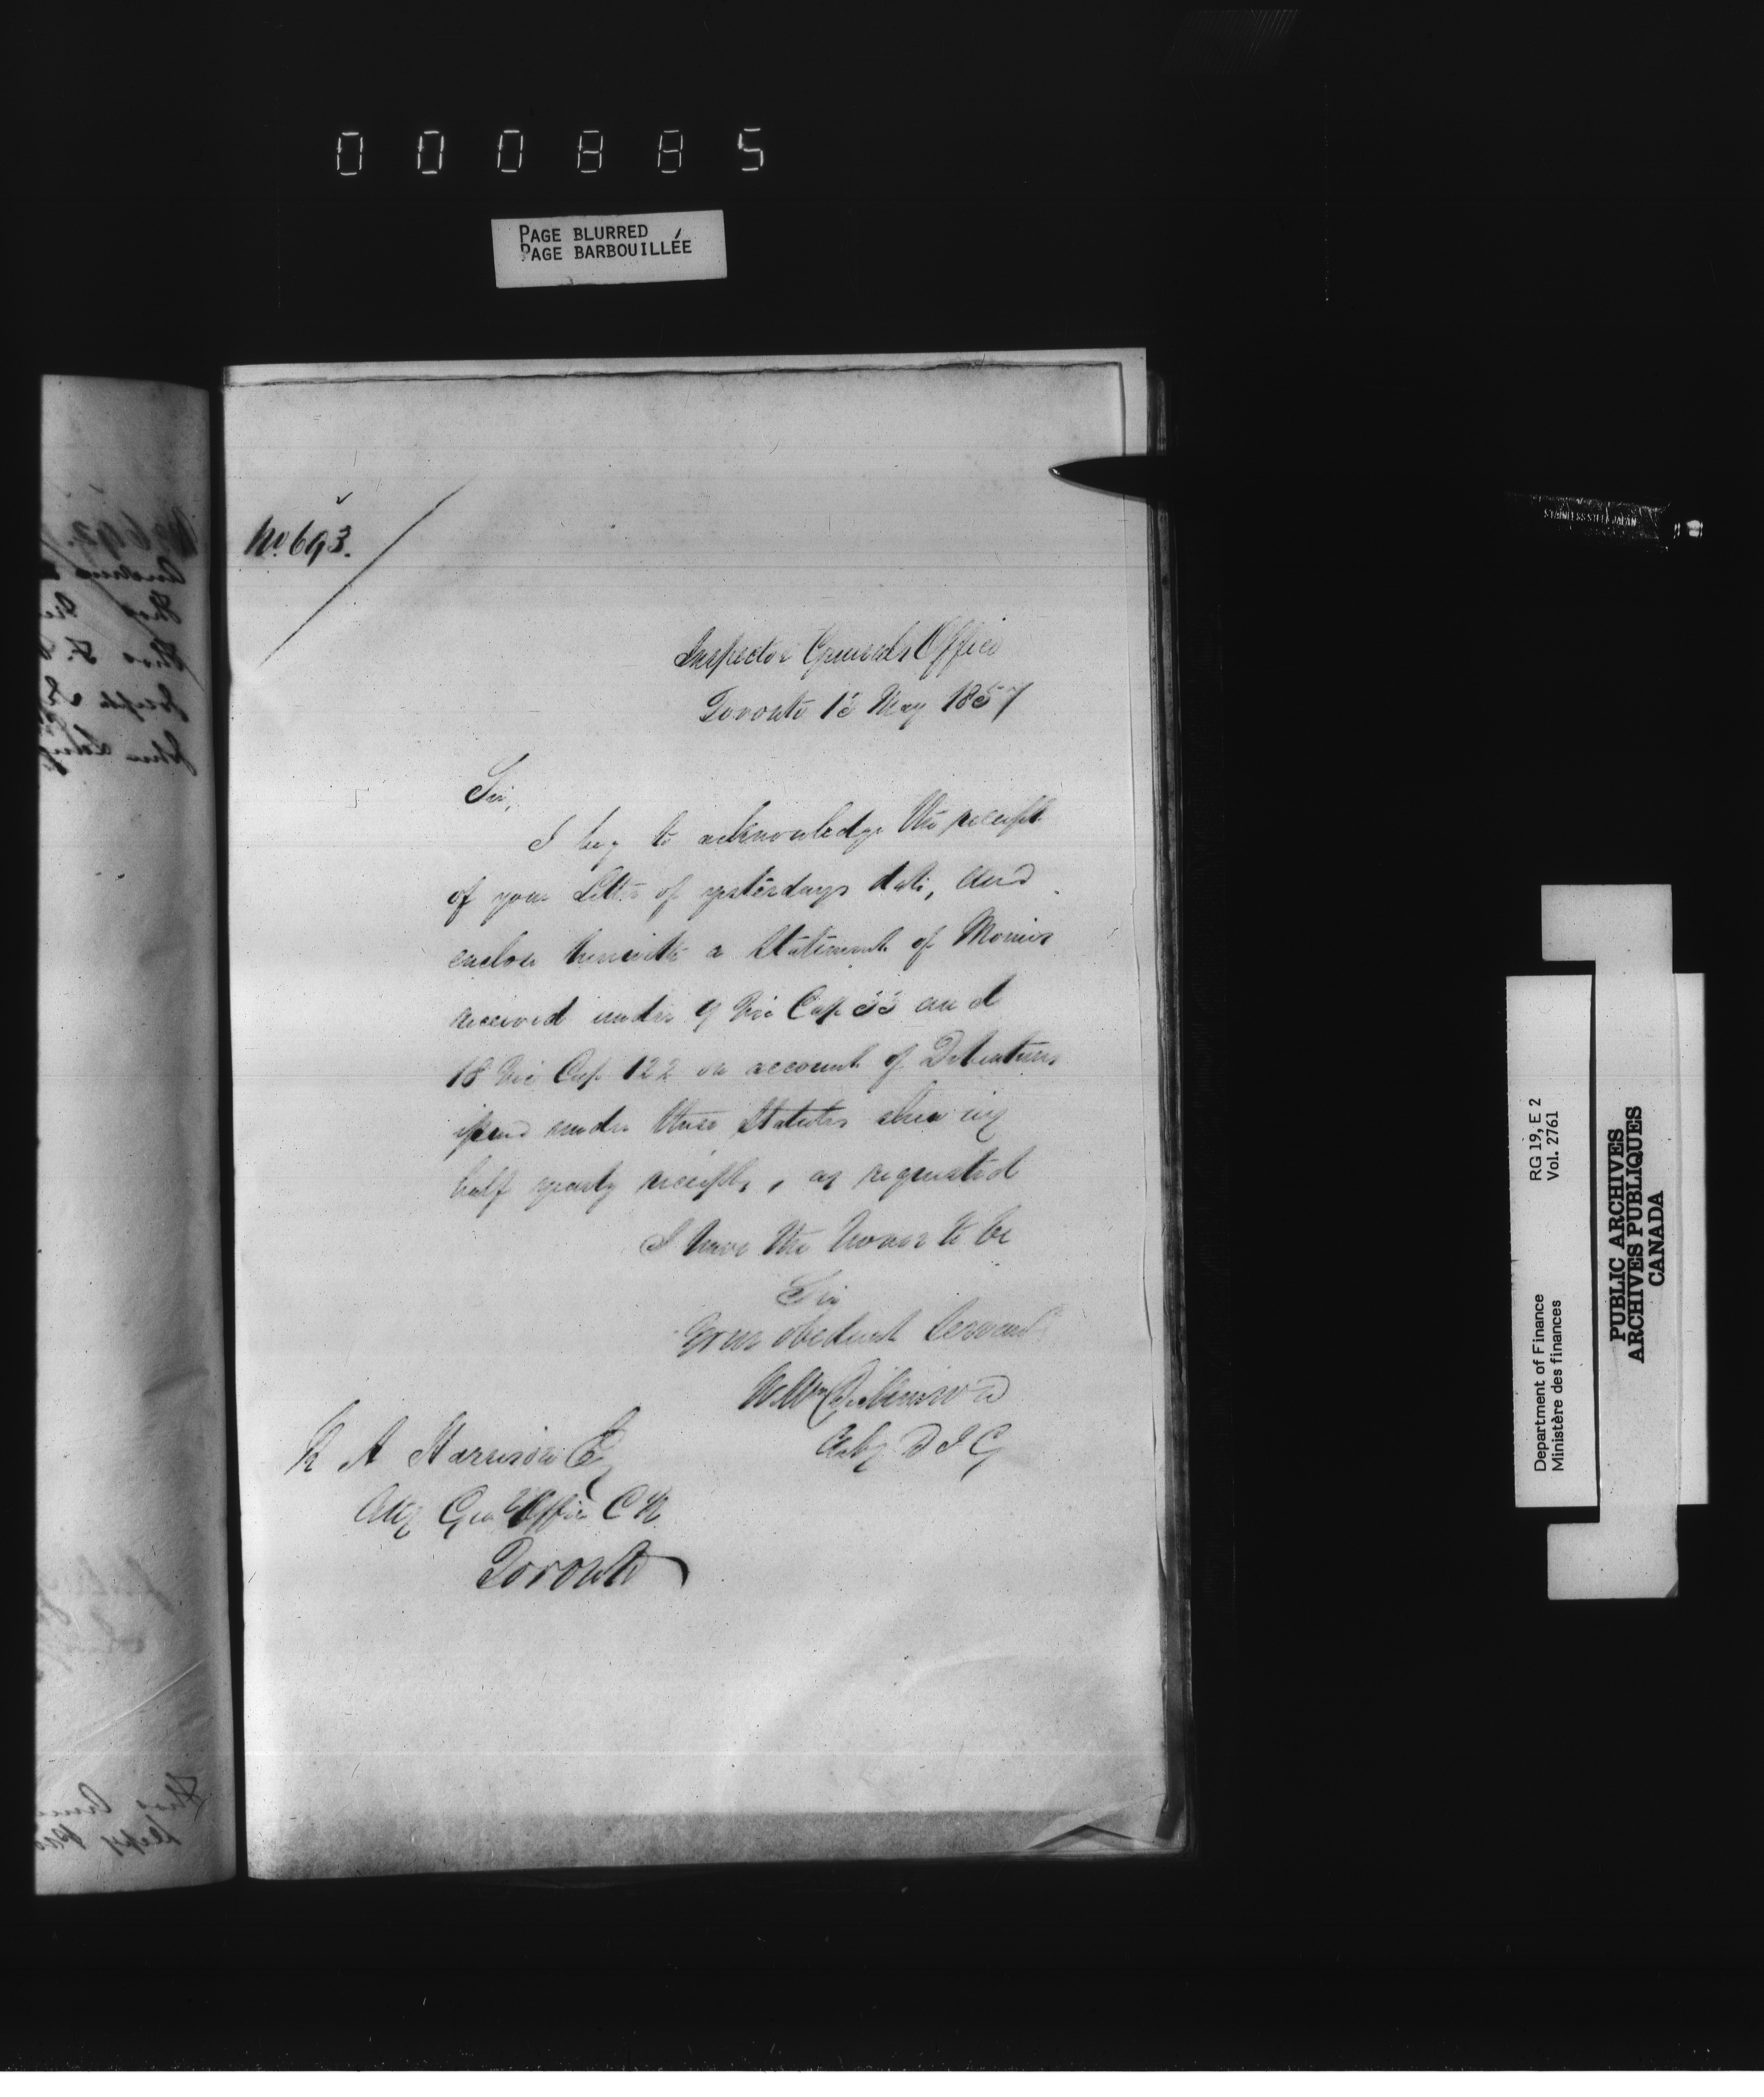 000885
PAGE BLURRED
PAGE BARBOUILLÉE
No. 693.
Inspector Generals Office
Toronto 13 May 1857
Sir,
I beg to acknowledge the receipt
of your Letter of yesterdays date, and
enclose herewith a Statement of Monies
received under 9 Vic Cap 33 and
18 Vic Cap 122 on account of Debentures
issued under those Statutes shewing
half yearly receipts, as requested
I have the honor to be
Sir
Your obedient Servant
Dickinson
Actg D I G
R A Harrison Esq
Atty Genl Office C W
Toronto
STAINLESS STEEL JAPAN
Department of Finance
Ministère des finances
RG 19, E 2
Vol. 2761
PUBLIC ARCHIVES
ARCHIVES PUBLIQUES
CANADA